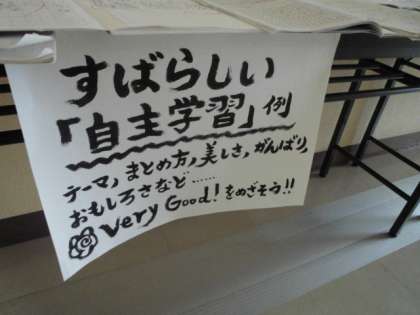 すばらしい
「自主学習」例
テーマ,まとめ方,美しさ,がんばり,
おもしろさなど……
Very Good!をめざそう!!